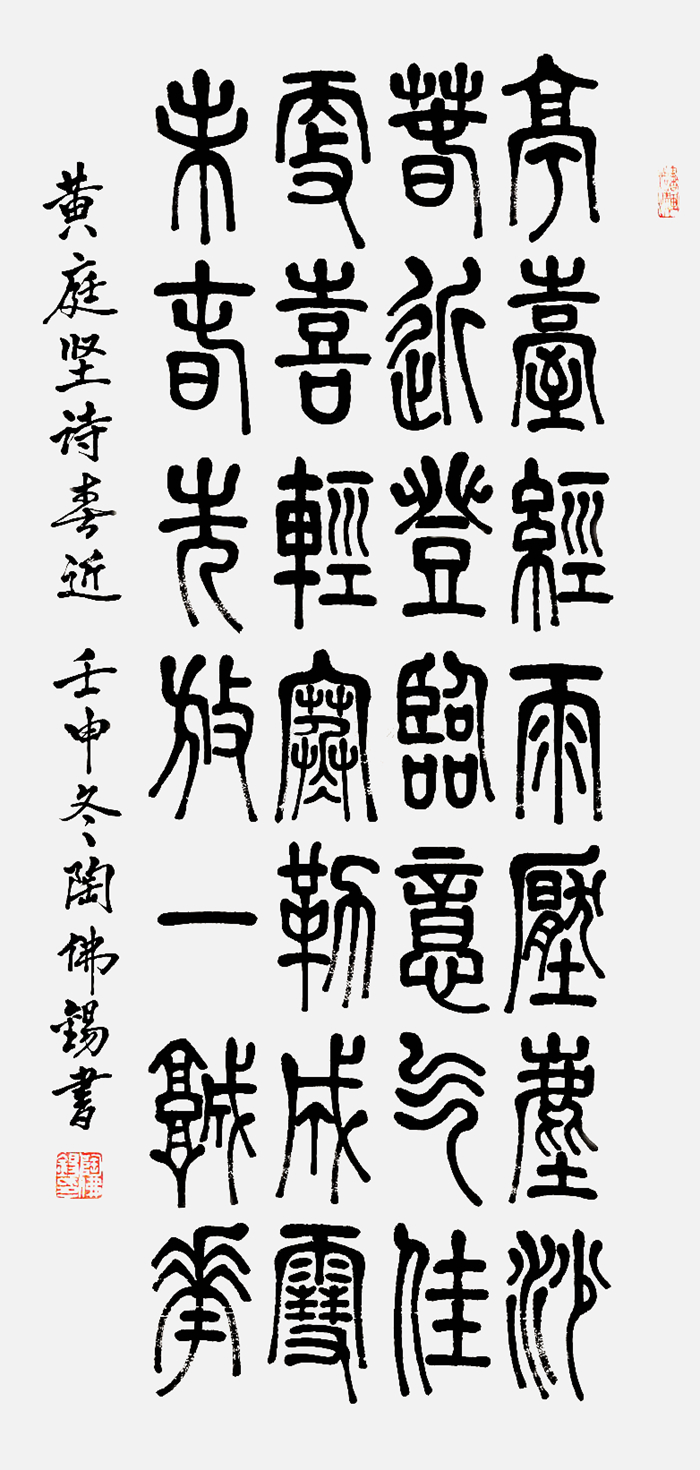 亭臺經雨壓塵沙
春近登臨意气佳
更喜輕寒勒成雪
未春先放一城華
黄庭坚诗春近 壬申冬陶佛錫書